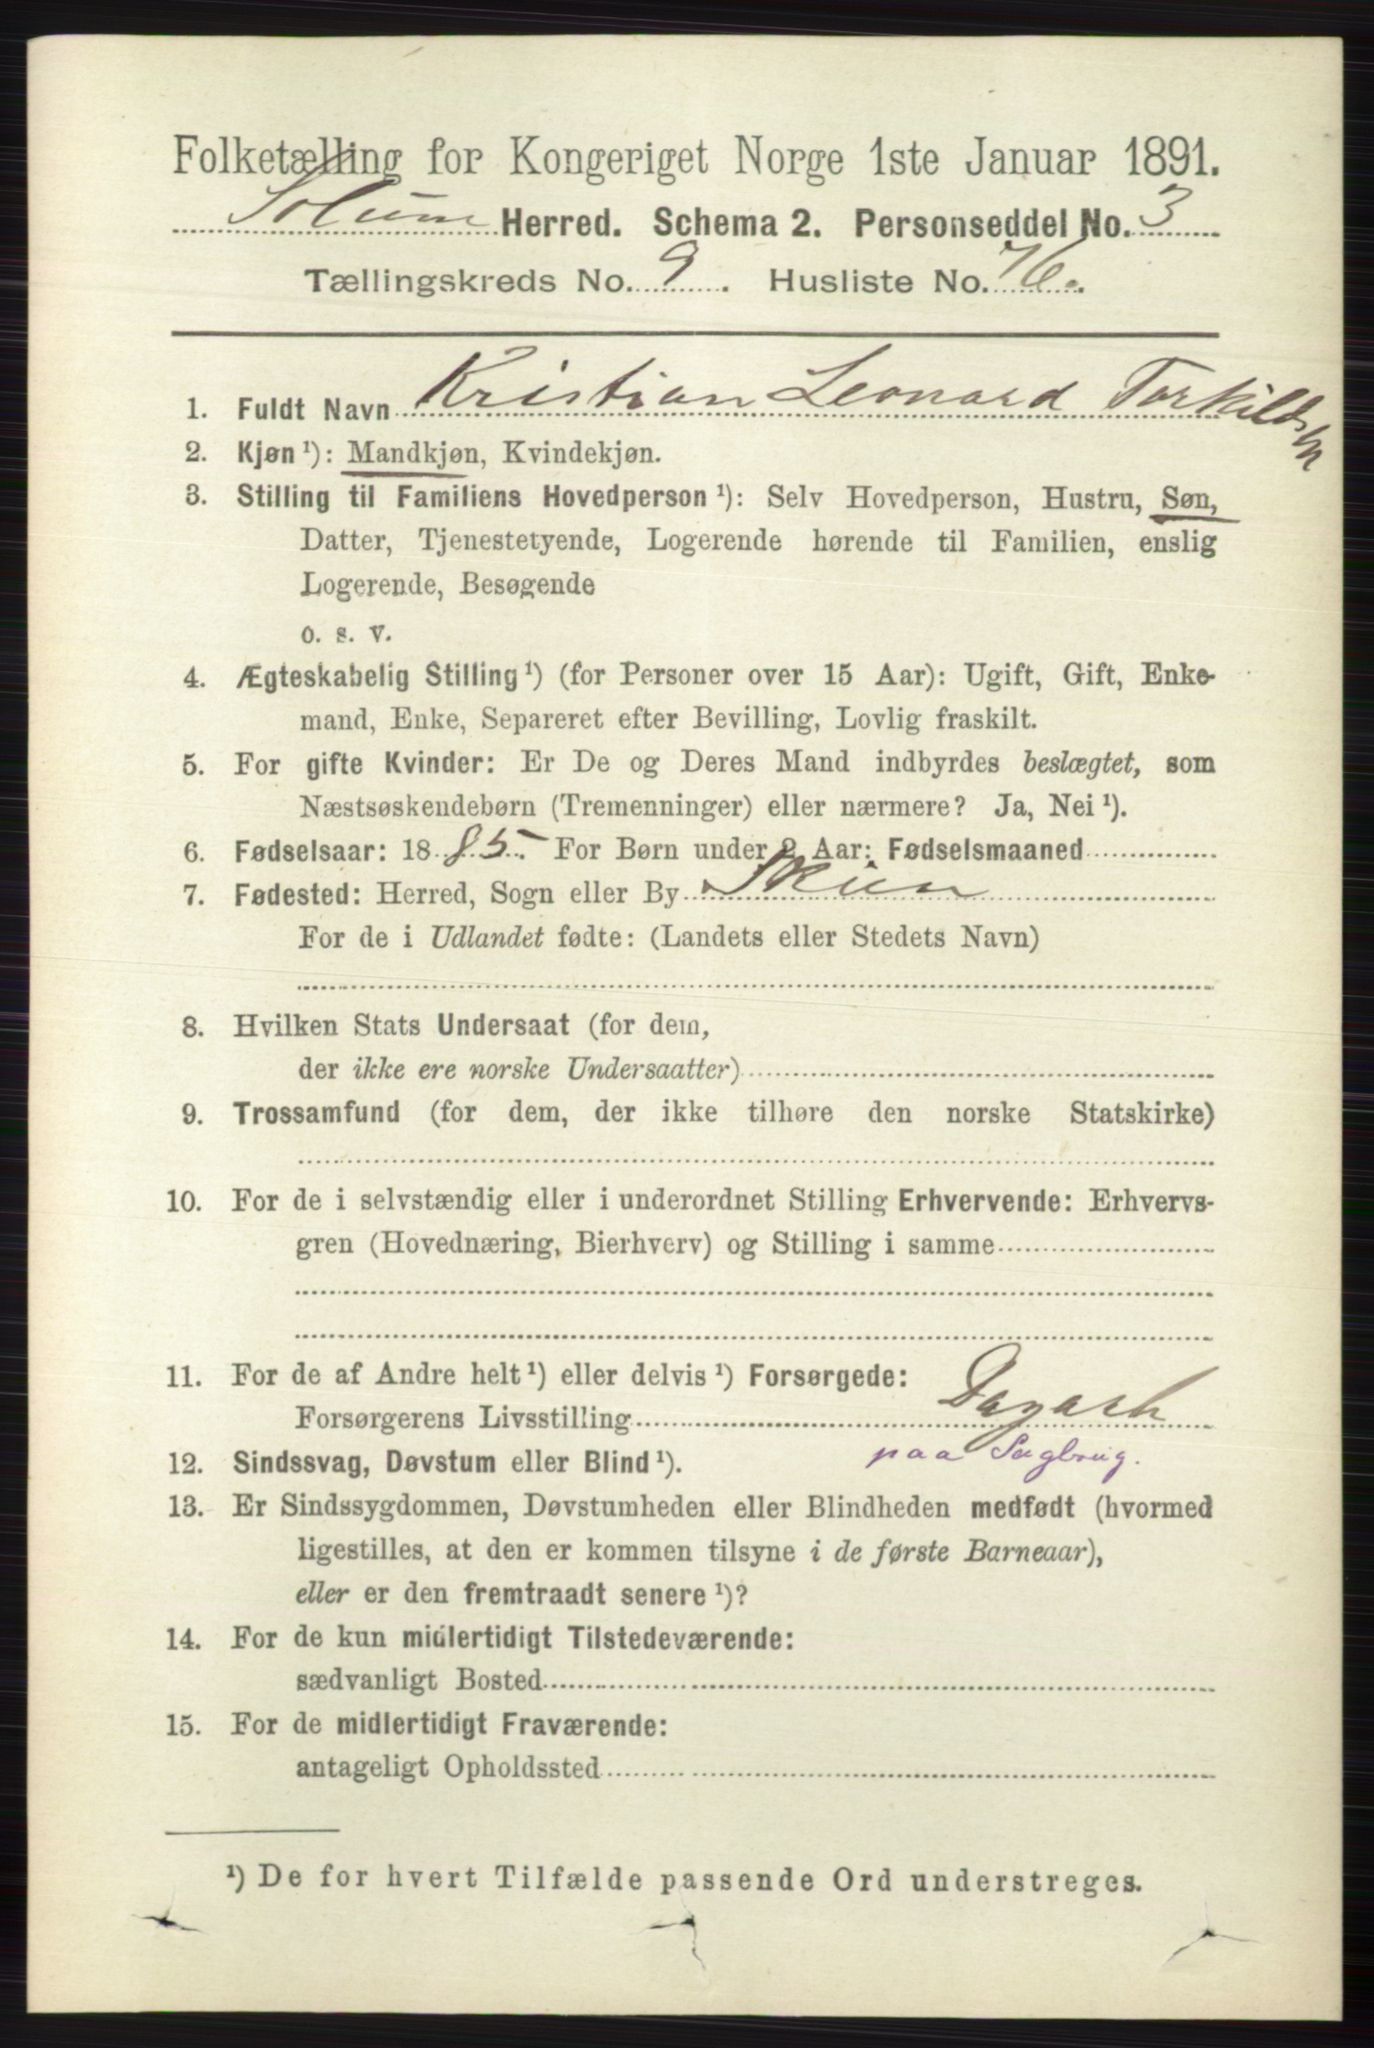 Folketælling for Kongeriget Norge 1ste Januar 1891.
Solum Herred. Schema 2. Personseddel No. 3
Tællingskreds No. 9. Husliste No. 76.
1. Fuldt Navn Kristian Leonard Torkildsen
2. Kjøn ¹): Mandkjøn, Kvindekjøn.
3. Stilling til Familiens Hovedperson ¹): Selv Hovedperson, Hustru, Søn,
Datter, Tjenestetyende, Logerende hørende til Familien, enslig
Logerende, Besøgende
o. s. v.
4. Ægteskabelig Stilling ¹) (for Personer over 15 Aar): Ugift, Gift, Enke-
mand, Enke, Separeret efter Bevilling, Lovlig fraskilt.
5. For gifte Kvinder: Er De og Deres Mand indbyrdes beslægtet, som
Næstsøskendebørn (Tremenninger) eller nærmere? Ja, Nei ¹).
6. Fødselsaar: 1885. For Børn under 2 Aar: Fødselsmaaned
7. Fødested: Herred, Sogn eller By Skien
For de i Udlandet fødte: (Landets eller Stedets Navn)
8. Hvilken Stats Undersaat (for dem,
der ikke ere norske Undersaatter)
9. Trossamfund (for dem, der ikke tilhøre den norske Statskirke)
10. For de i selvstændig eller i underordnet Stilling Erhvervende: Erhvervs-
gren (Hovednæring, Bierhverv) og Stilling i samme
11. For de af Andre helt ¹) eller delvis ¹) Forsørgede:
Forsørgerens Livsstilling Dagarb
paa Sagbrug.
12. Sindssvag, Døvstum eller Blind ¹).
13. Er Sindssygdommen, Døvstumheden eller Blindheden medfødt (hvormed
ligestilles, at den er kommen tilsyne i de første Barneaar),
eller er den fremtraadt senere ¹)?
14. For de kun midlertidigt Tilstedeværende:
sædvanligt Bosted
15. For de midlertidigt Fraværende:
antageligt Opholdssted
¹) De for hvert Tilfælde passende Ord understreges.